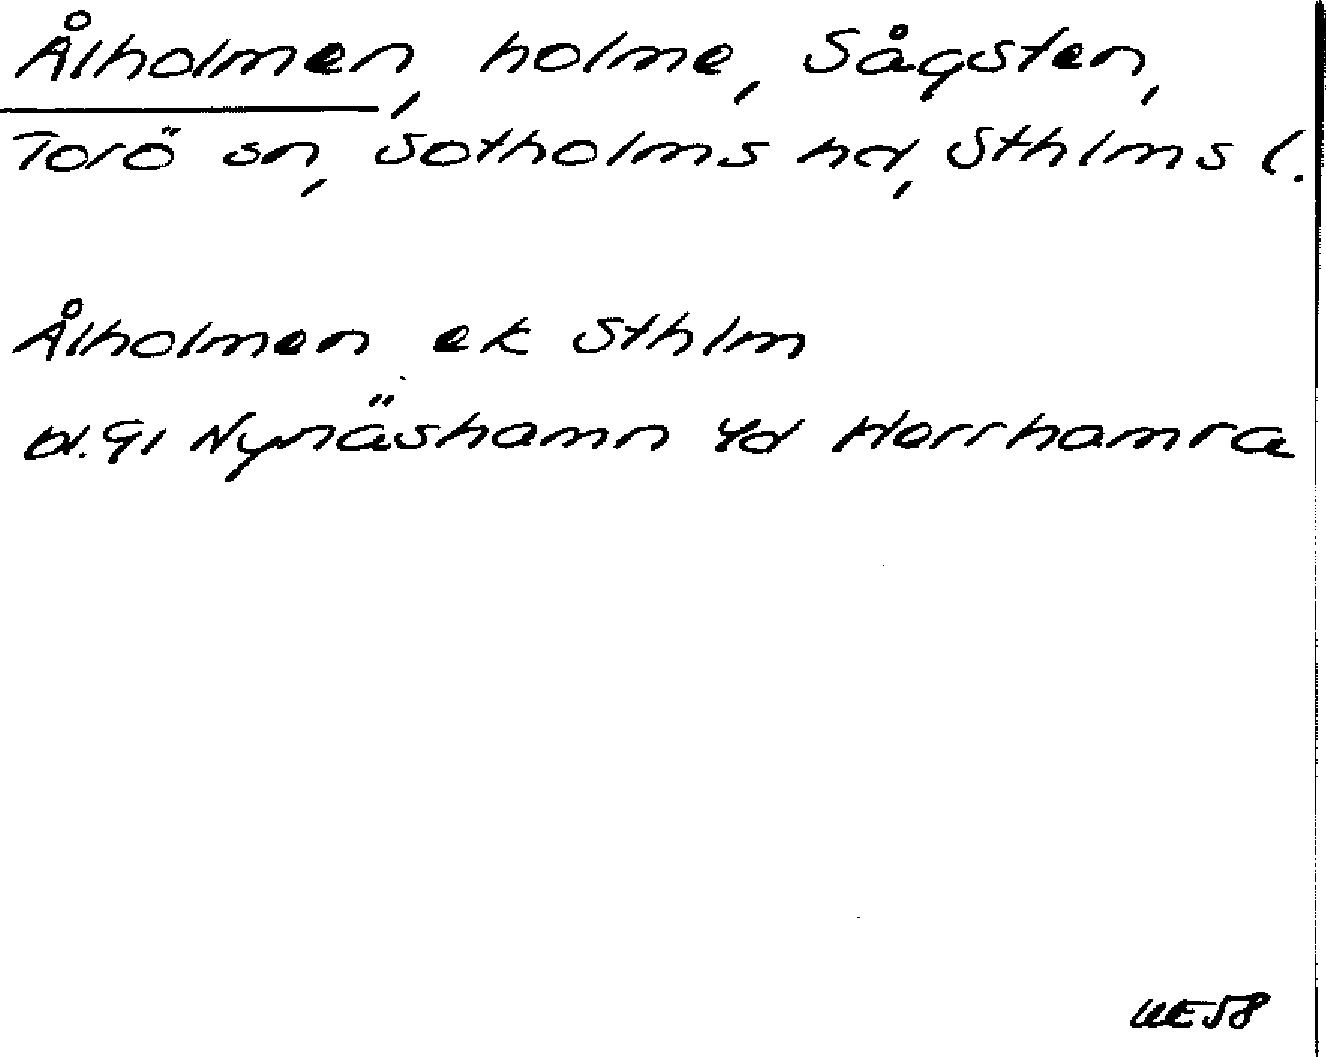 Ålholmen, holme, Sågsten,
Torö sn, Sotholms hd, Sthlms l.
Ålholmen ek Sthlm
bl. 91 Nynäshamn 4d Herrhamra
UE58